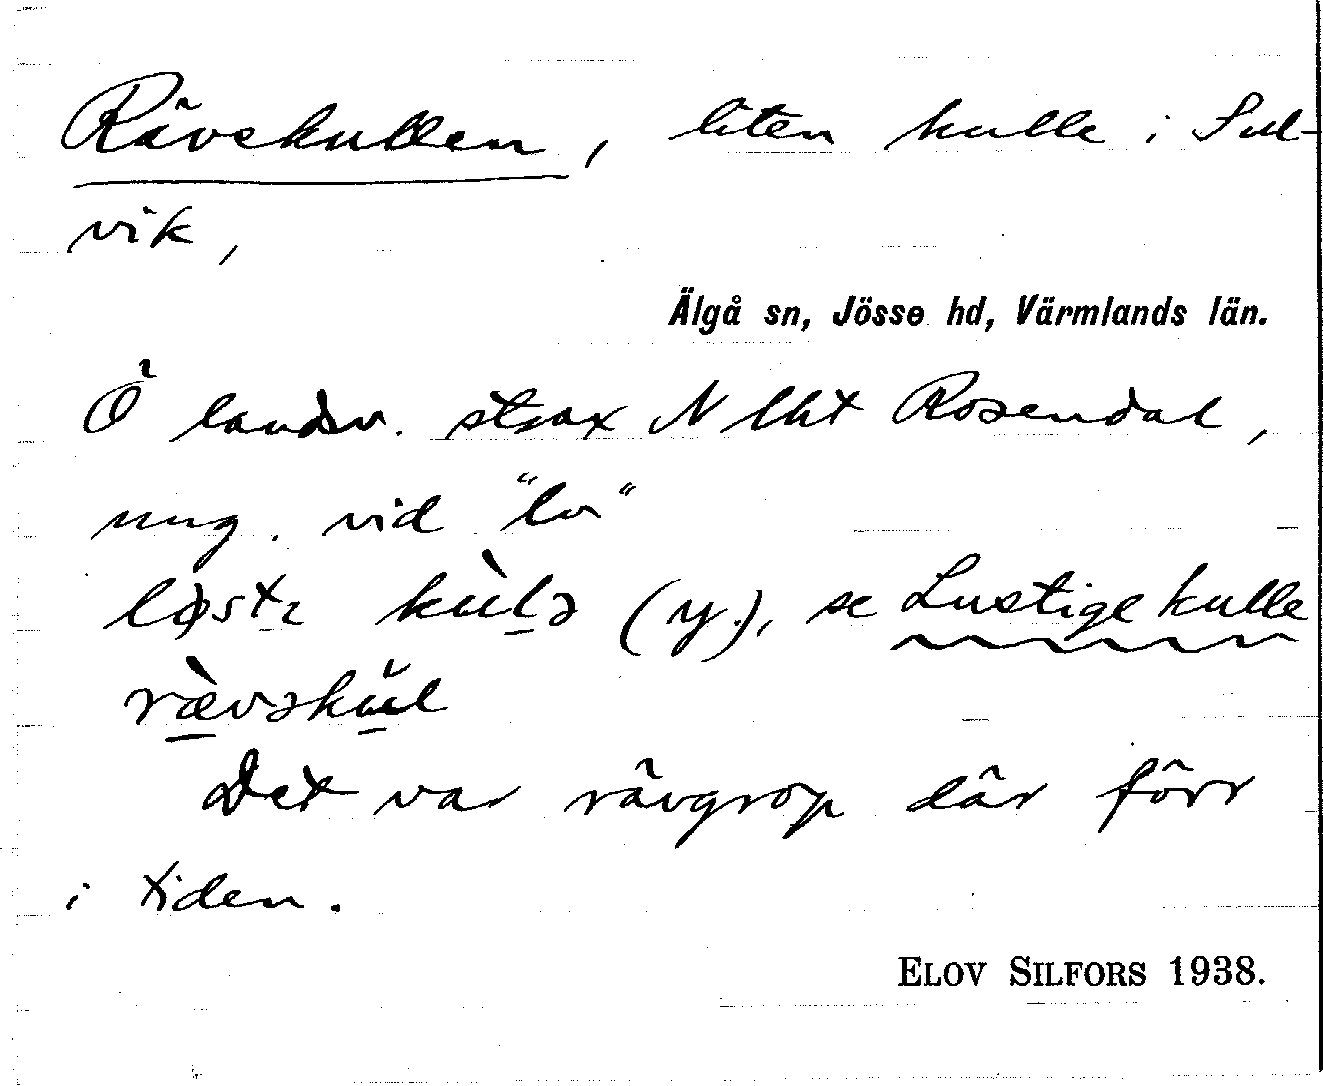 Rävskullen, liten kulle i Sul-
vik,
Älgå sn, Jösse hd, Värmlands län.
Ö landsv. strax N lht Rosendal,
ung. vid "lv"
kùlə (y.), se Lustige kulle
rævskul
Det var rävgrop där förr
i tiden.
ELOV SILFORS 1938.